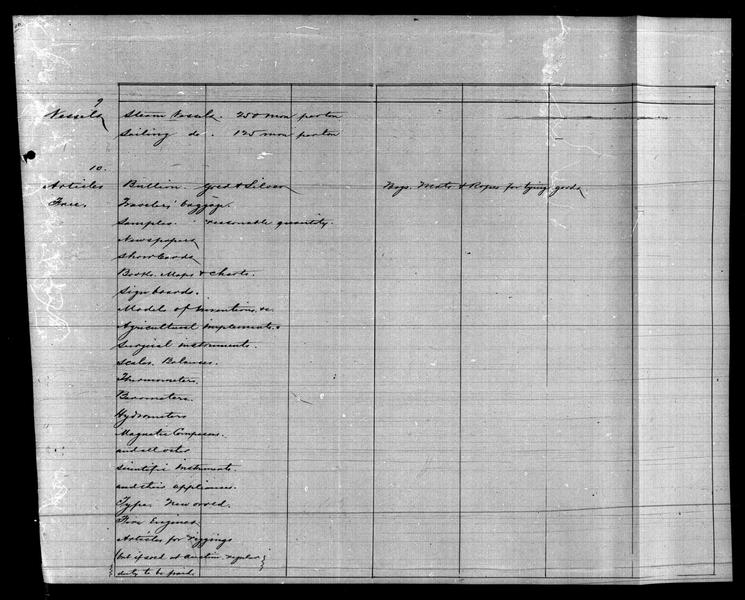 9
Vessels Steam Vessels. 250 mon per ton
Sailing do. 125 mon per ton
10.
Articles Bullion. Gold & Silver Bags. Mats & Ropes for tying goods
Free. Travelers' baggage.
Samples. reasonable quantity.
Newspapers
Show Cards
Books. Maps & Charts.
Sign boards.
Models of Inventions &c.
Agricultural Implements.
Surgical instruments.
Scales. Balances.
Thermometers.
Barometers.
Hydrometers
Magnetic Compasses.
and all other
Scientific Instruments
and their appliances.
Types. New or old.
Fire Engines
Articles for
(but if sold at Auction regular
duty to be paid.